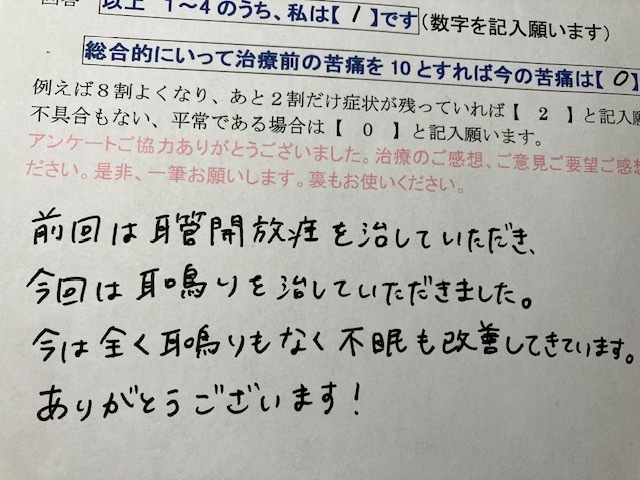 回答 以上 1〜4のうち、私は【 1 】です(数字を記入願います)
総合的にいって治療前の苦痛を10とすれば今の苦痛は【 0 】
例えば8割よくなり、あと2割だけ症状が残っていれば【 2 】と記入
不具合もない、平常である場合は【 0 】と記入願います。
アンケートご協力ありがとうございました。治療のご感想、ご意見ご要望ご感想
ださい。是非、一筆お願いします。裏もお使いください。
前回は耳管開放症を治していただき、
今回は耳鳴りを治していただきました。
今は全く耳鳴りもなく不眠も改善してきています。
ありがとうございます!